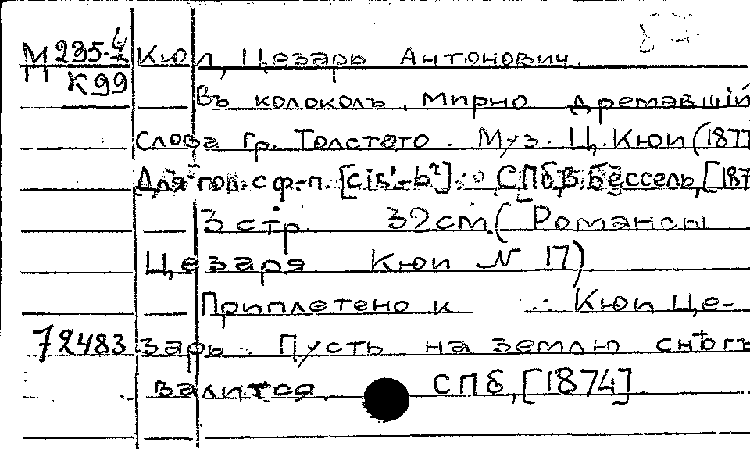 М 235-4 Кюи, Цезарь Антонович.
П К 99
Въ колоколъ, мирно дремавшій
Слова гр. Толстого. Муз. Ц. Кюи (1877
Для гол. с ф-п. [cis'-b²]. СПб, В. Бессель, [187
3 стр. 32 см. (Романсы
Цезаря Кюи № 17)
Приплетено к : Кюи Це-
72483 зарь. Пусть на землю снѣгъ
валится. СПб, [1874]